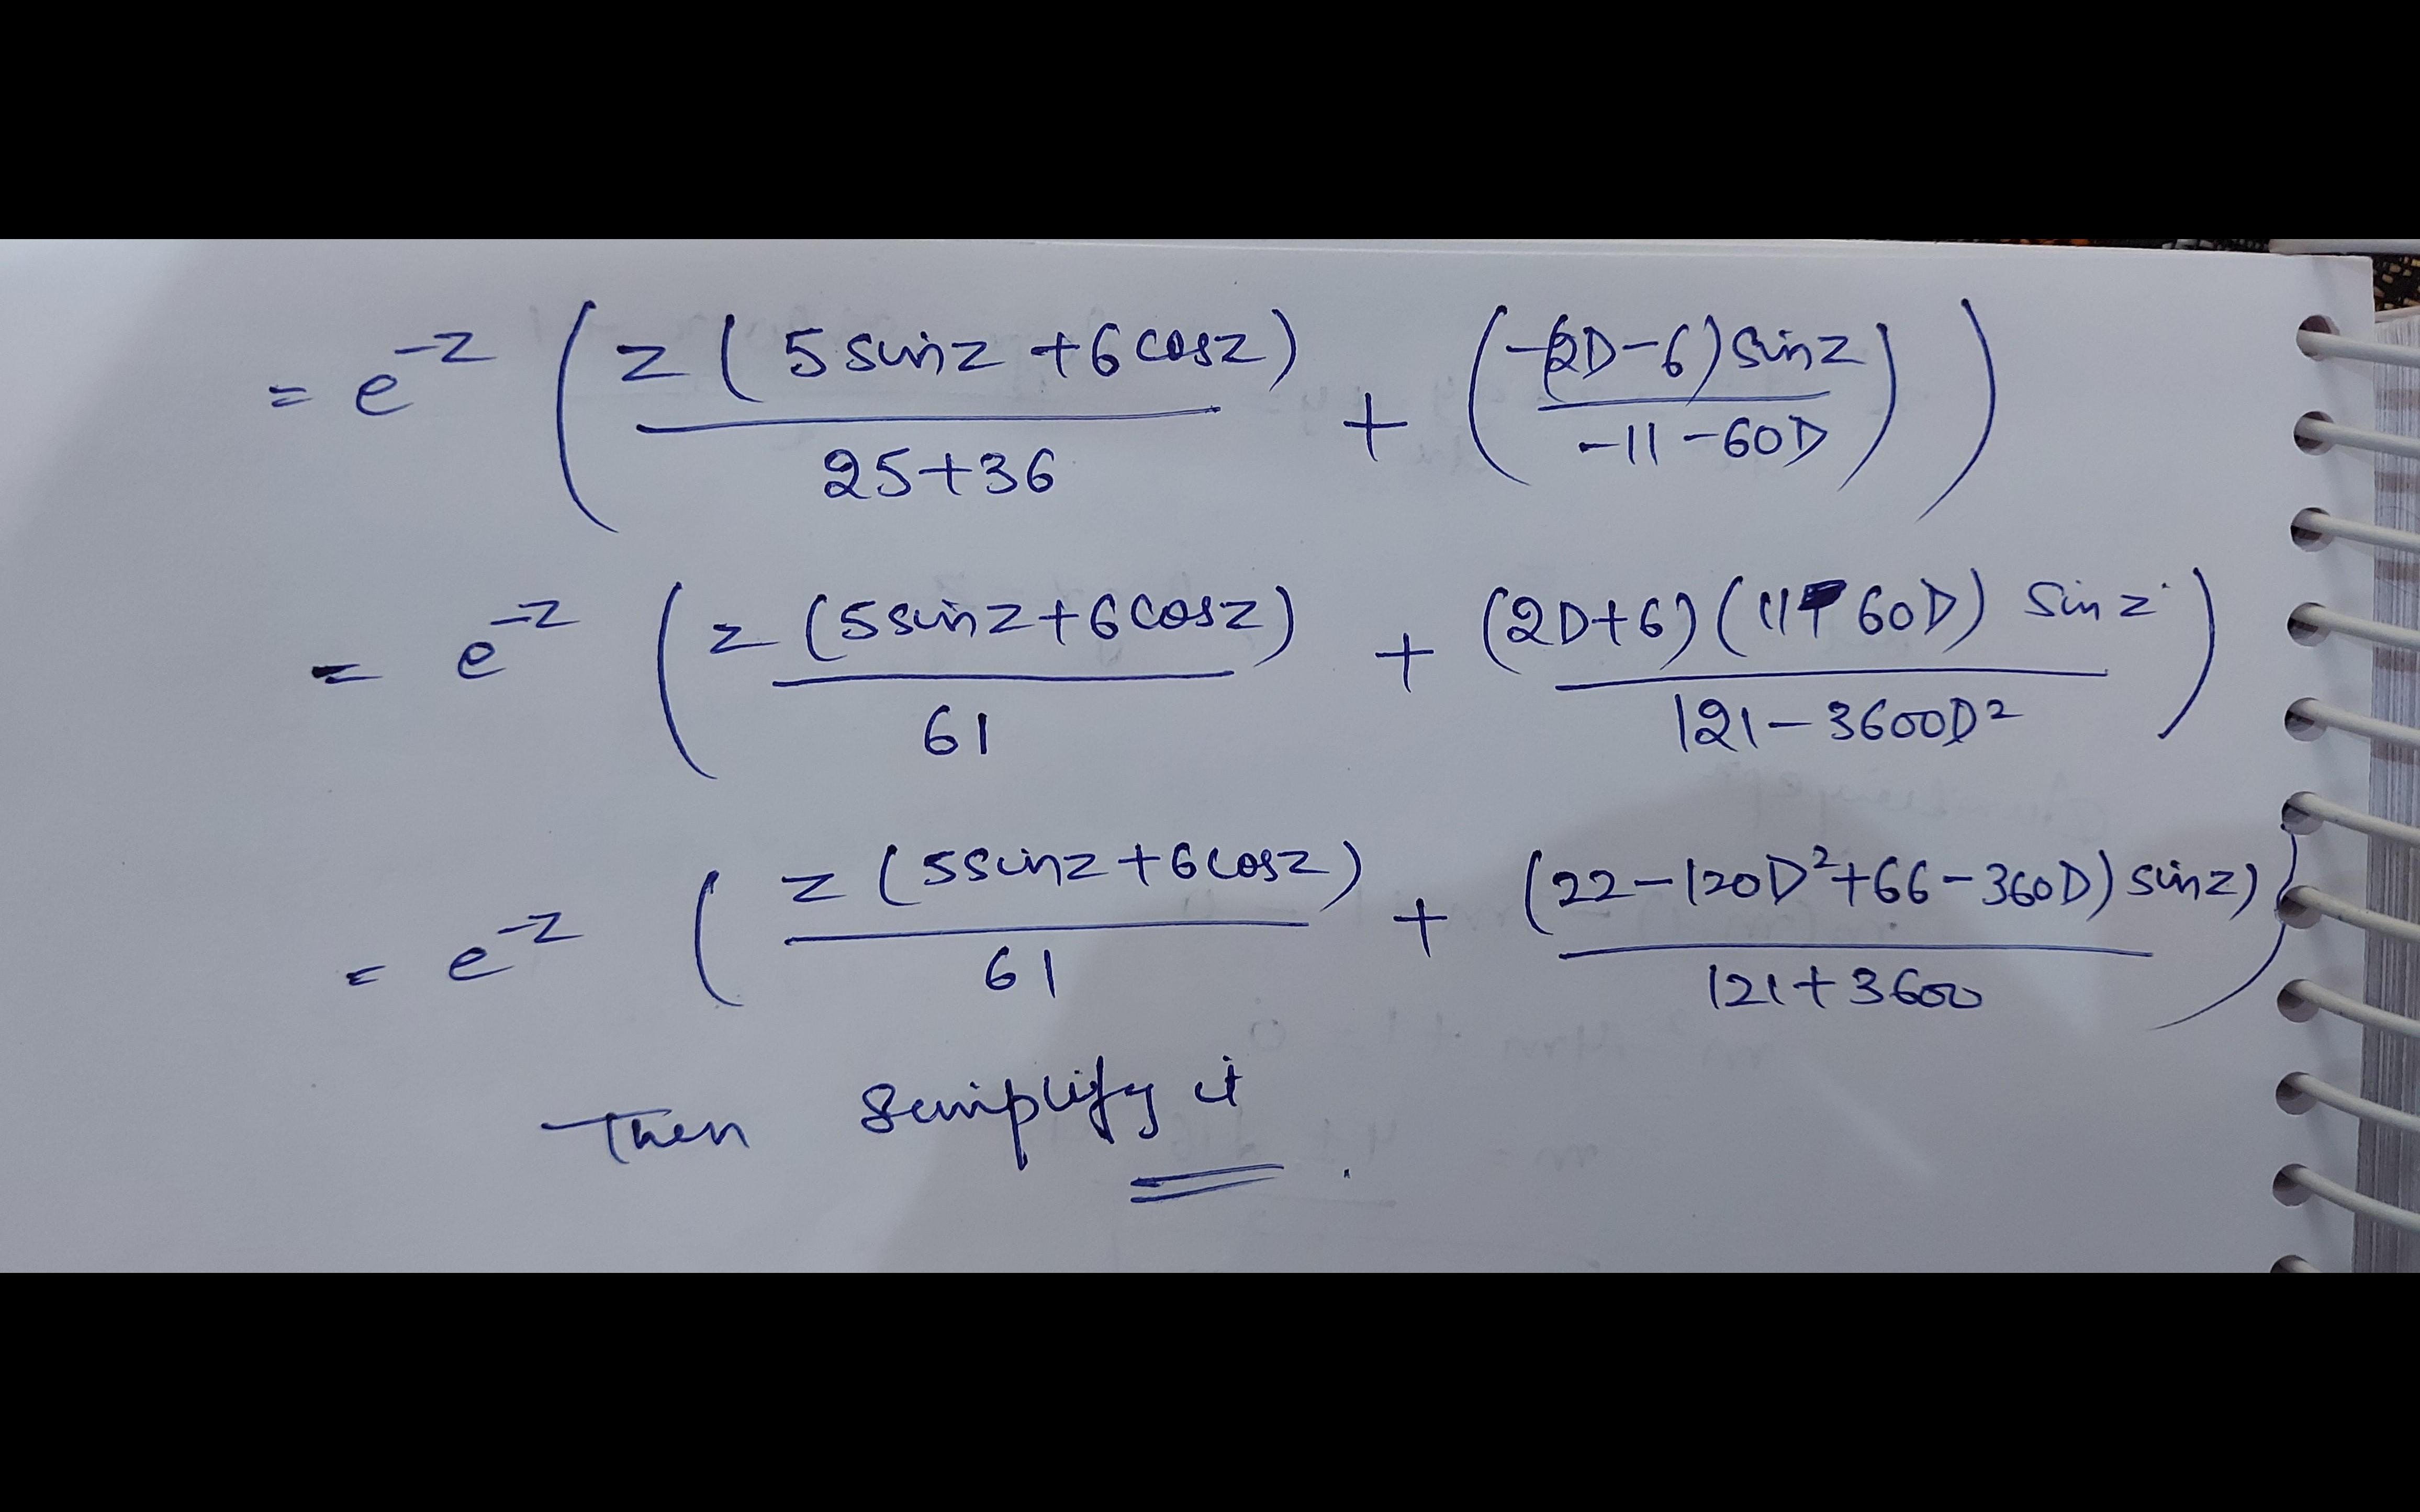 = e^{-z} ( z(5 sinz + 6 cosz) / 25+36 + ( (-2D-6) sinz / -11-60D ) )
= e^{-z} ( z(5 sinz + 6 cosz) / 61 + (2D+6)(11-60D) sinz / 121-3600D² )
= e^{-z} ( z(5 sinz + 6 cosz) / 61 + (22-120D²+66-360D) sinz) / 121+3600 )
Then simplify it.